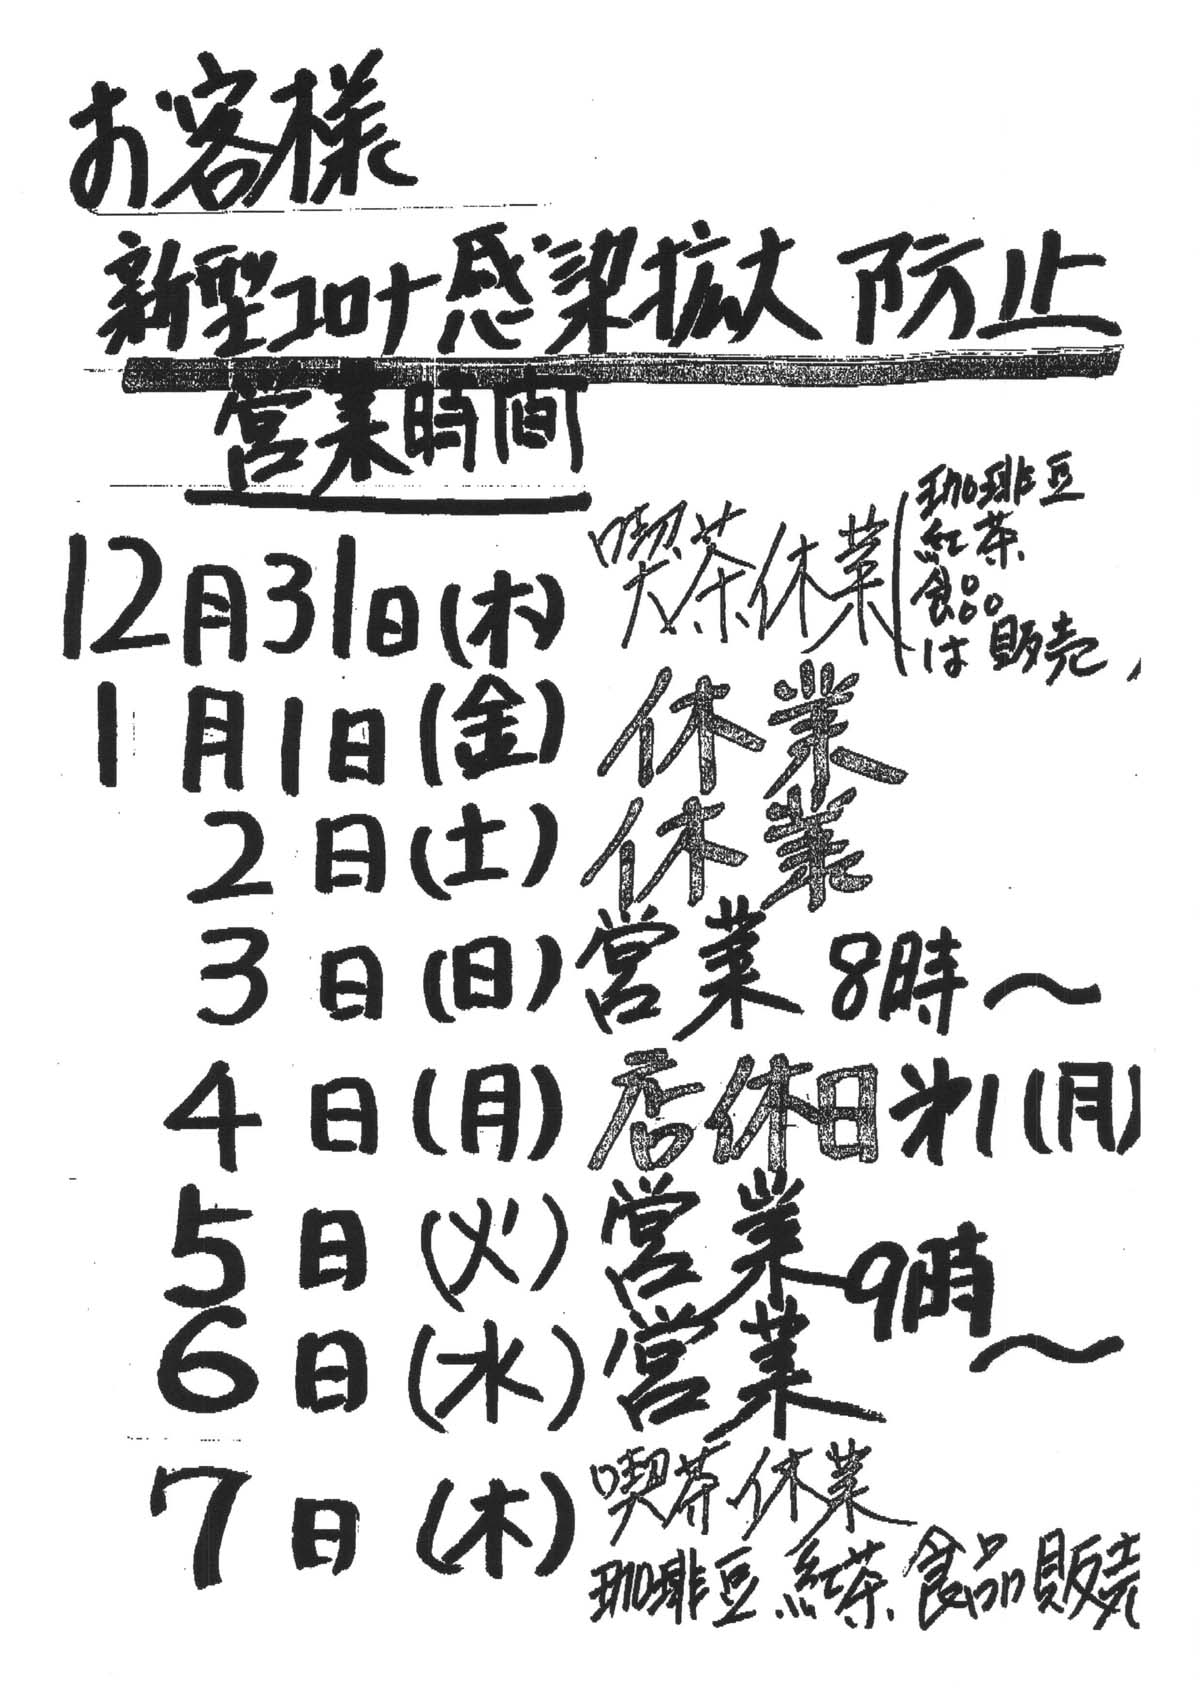 お客様
新型コロナ感染拡大防止
営業時間
12月31日(木) 喫茶休業(珈琲豆
紅茶
食品
は販売
1月1日(金) 休業
2日(土) 休業
3日(日) 営業 8時〜
4日(月) 店休日 第1(月)
5日(火) 営業 9時〜
6日(水) 営業
7日(木) 喫茶休業
珈琲豆 紅茶 食品販売